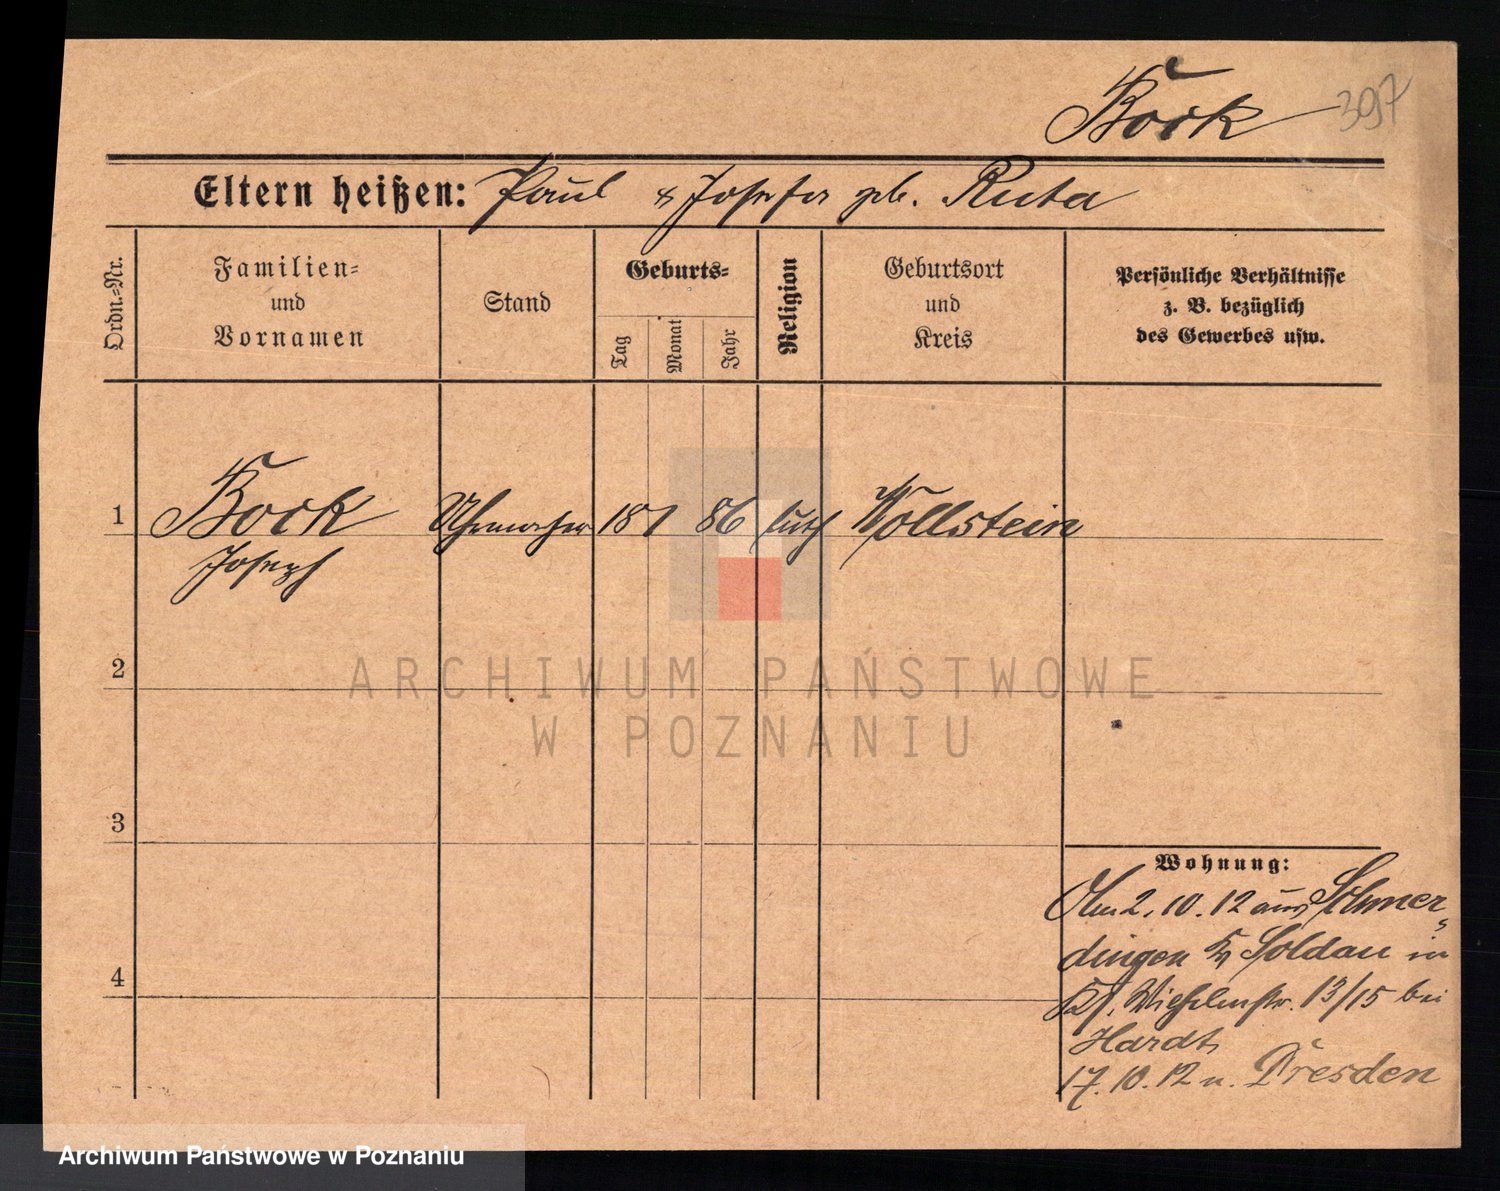 Bock 397
Eltern heißen: Paul & Josefa geb. Ruta
Ordn.-Nr.
Familien-
und
Vornamen
Stand
Geburts-
Tag
Monat
Jahr
Religion
Geburtsort
und
Kreis
Persönliche Verhältnisse
z. B. bezüglich
des Gewerbes usw.
1 Bock Uhrmacher 18 1 86 luth Wollstein
Joseph
2
ARCHIWUM PAŃSTWOWE
W POZNANIU
3
Wohnung:
2.10.12 aus Schmer-
dingen Soldau in
Wilhelmstr. 13/15 bei
4
Hardt
17.10.12 n. Dresden
Archiwum Państwowe w Poznaniu